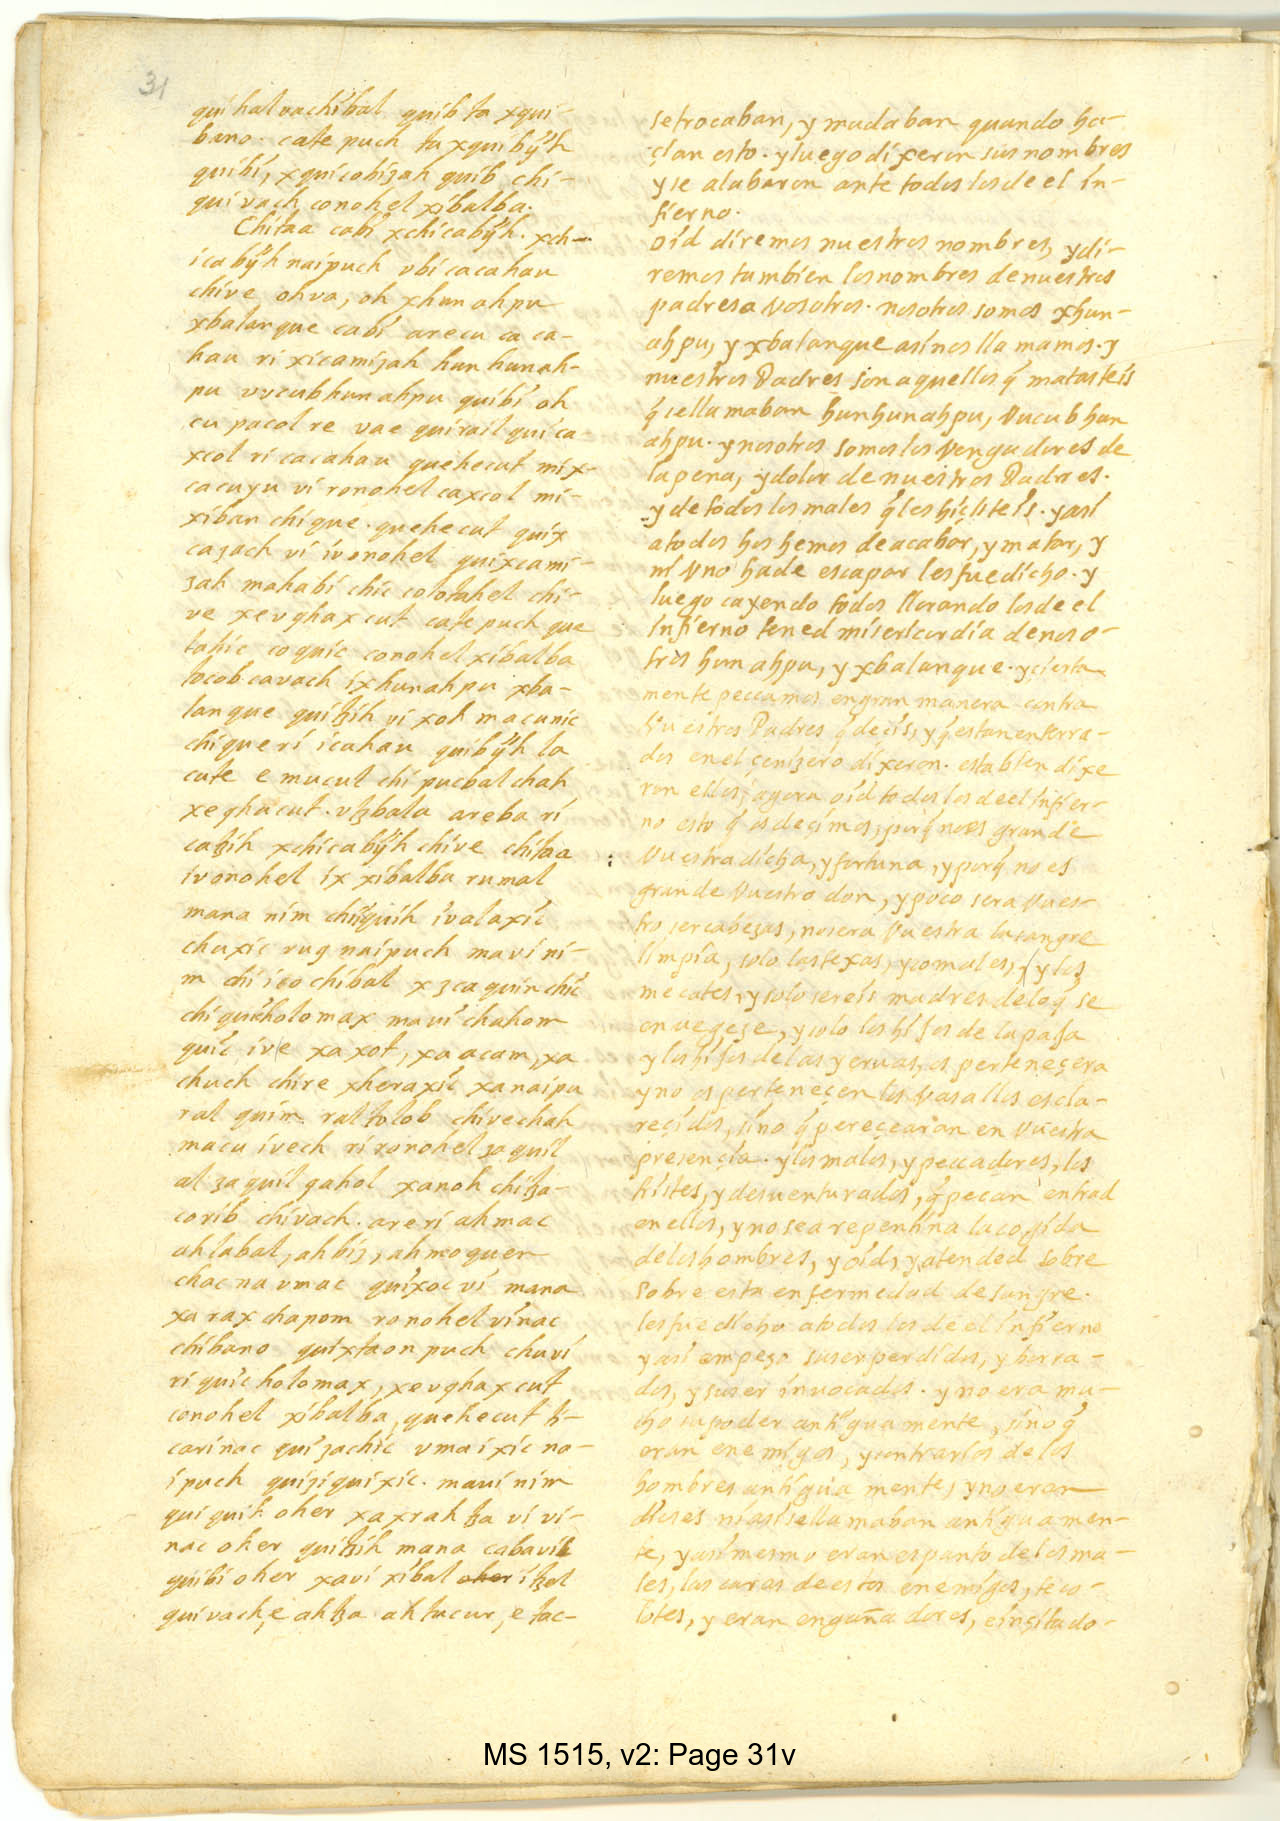 31
quihalvachibal quib ta xqui-
bano. cate puch ta xquibijh
quibi, xquicobizah quib chi-
quivach conohel xibalba.
Chitaa cabi xchicabijh. xch-
icabijh naipuch ubi cacahau
chive oh va, oh xhunahpu
xbalanque cabi arecu ca ca-
hau ri xicamizah hun hunah-
pu vucub hunahpu quibi oh
cu pacol re vae quirail quica-
xcol ri cacahau quehecut mix-
cacuyu vi ronohel caxcol mi-
xiban chique. quehecut quix
cazach vi ivonohel quixcami-
zah mahabi chic colotahel chi-
ve xevghaxcut cate puch que
tahic coquic conohel xibalba
tocob cavach ix hunahpu xba-
lanque quitzih vi xoh macunic
chique ri icahau quibijh la
cate e mucul chi pucbal chah
xeghacut. utzbala areba ri
catzih xchicabijh chive chitaa
ivonohel ix xibalba rumal
mana nim chi iquih ivalaxic
chaxic rug naipuch mavi ni-
m chi icochibal xzcaquin chic
chi quicholomax mavi chahom
quic ive xa xot, xa acam, xa
chuch chire xheraxic xanaipu
ral quim ral tolob chivechah
macu ivech ri ronohel zaquil
al zaquil qahol xanoh chitza-
corib chivach. areri ahmac
ahlabal, ahbiz, ahmoquen
chac na umac quixoc vi mana
xa rax chapom ronohel vinac
chibano quixtaon puch chuvi
ri quic holomax, xevghaxcut
conohel xibalba, quehecut ti-
carinac quizachic umaixic na-
ipuch quiziquixic. mavi nim
qui quih oher xaxrah tza vi vi-
nac oher quitzih mana cabavil
quibi oher xavi xibal oher itzel
quivach, e ahtza ahtucur, e tac-
se trocaban, y mudaban quando ha-
çian esto. y luego dixeron sus nombres
y se alabaron ante todos los de el in-
fierno.
oid diremos nuestros nombres, y di-
remos tambien los nombres de nuestros
padres a vosotros. nosotros somos xhun-
ahpu, y xbalanque asi nos llamamos. y
nuestros Padres son aquellos q̃ matasteis
q̃ se llamaban hunhunahpu, vucub hun
ahpu. y nosotros somos los vengadores de
la pena, y dolor de nuestros Padres.
y de todos los males q̃ les hiçisteis. y asi
a todos hos hemos de acabar, y matar, y
ni vno hade escapar les fue dicho. y
luego cayendo todos llorando los de el
Infierno tened misericordia de noso-
tros hunahpu, y xbalanque. y cierta
mente peccamos en gran manera contra
vuestros Padres q̃ deçis, y q̃ estan enterra-
dos en el çenizero dixeron. esta bien dixe
ron ellos, agora oid todos los de el Infier-
no esto q̃ os deçimos, porq̃ no es grande
vuestra dicha, y fortuna, y porq̃ no es
grande vuestro don, y poco sera vues-
tro ser cabezas, no sera vuestra la sangre
limpia, solo las texas, y comales, y los
mecates, y solo sereis madres de lo q̃ se
enuegeze, y solo los hijos de la paja
y los hijos de las yeruas, os perteneçera
y no os perteneçen los vasallos escla-
reçidos, sino q̃ pereçearan en vuestra
presençia. y los malos, y peccadores, los
tristes, y desuenturados, q̃ pecan entrad
en ellos, y no sea repentina la cogida
de los hombres, y oid, y atended sobre
sobre esta enfermedad de sangre.
les fue dicho a todos los de el infierno
y asi empezo suser perdidos, y borra-
dos, y suser invocados. y no era mu-
cho su poder antiguamente, sino q̃
eran enemigos, y contrarios de los
hombres antigua mente, y no eran
dioses ni asi se llamaban antiguamen-
te, y asi mesmo eran espanto de los ma-
les, las caras de estos enemigos, teco-
lotes, y eran engañadores, e inçitado-
MS 1515, v2: Page 31v